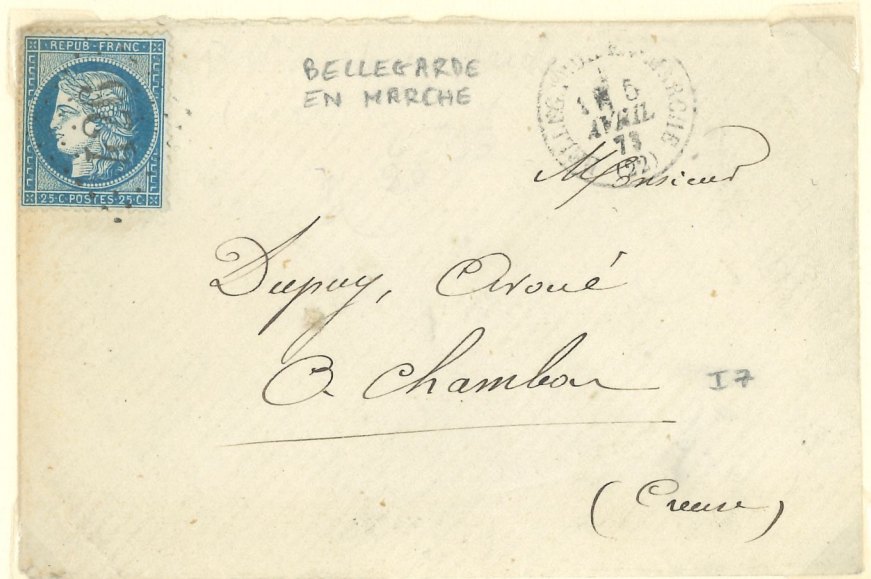 REPUB·FRANC·
25·C·POSTES·25·C·
BELLEGARDE
EN MARCHE
5
AVRIL
(22)
Monsieur
Dupuy, Avoué
à Chambon
I 7
(Creuse)